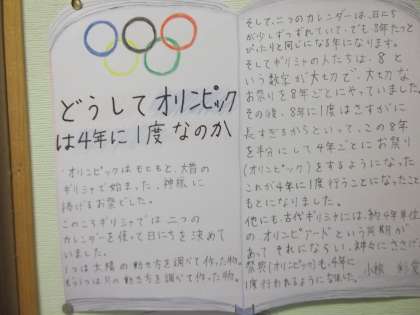 どうしてオリンピック
は4年に1度なのか
オリンピックはもともと、大昔の
ギリシャで始まった、神様に
捧げるお祭でした。
このころギリシャでは二つの
カレンダーを使って日にちを決めて
いました。
1つは太陽の動き方を調べて作った物。
もう1つは月の動き方を調べて作った物。
そして、二つのカレンダーは、日にち
が少しずつずれていて、でも、8年たっと
ぴったりと同じになる年になります。
そしてギリシャの人たちは、8と
いう数字が大切で、大切な
お祭りを8年ごとにやっていました。
その後、8年に1度はさすがに
長すぎるからといって、この8年
を半分にして4年ごとにお祭り
(オリンピック)をするようになった
これが4年に1度行うことになったこと
もとになりました。
他にも、古代ギリシャには、約4年単位
のオリンピアードという周期が
あって それにならい、神々にささげ
祭典(オリンピック)も、4年に
1度行われるようになった。
小檜 彩